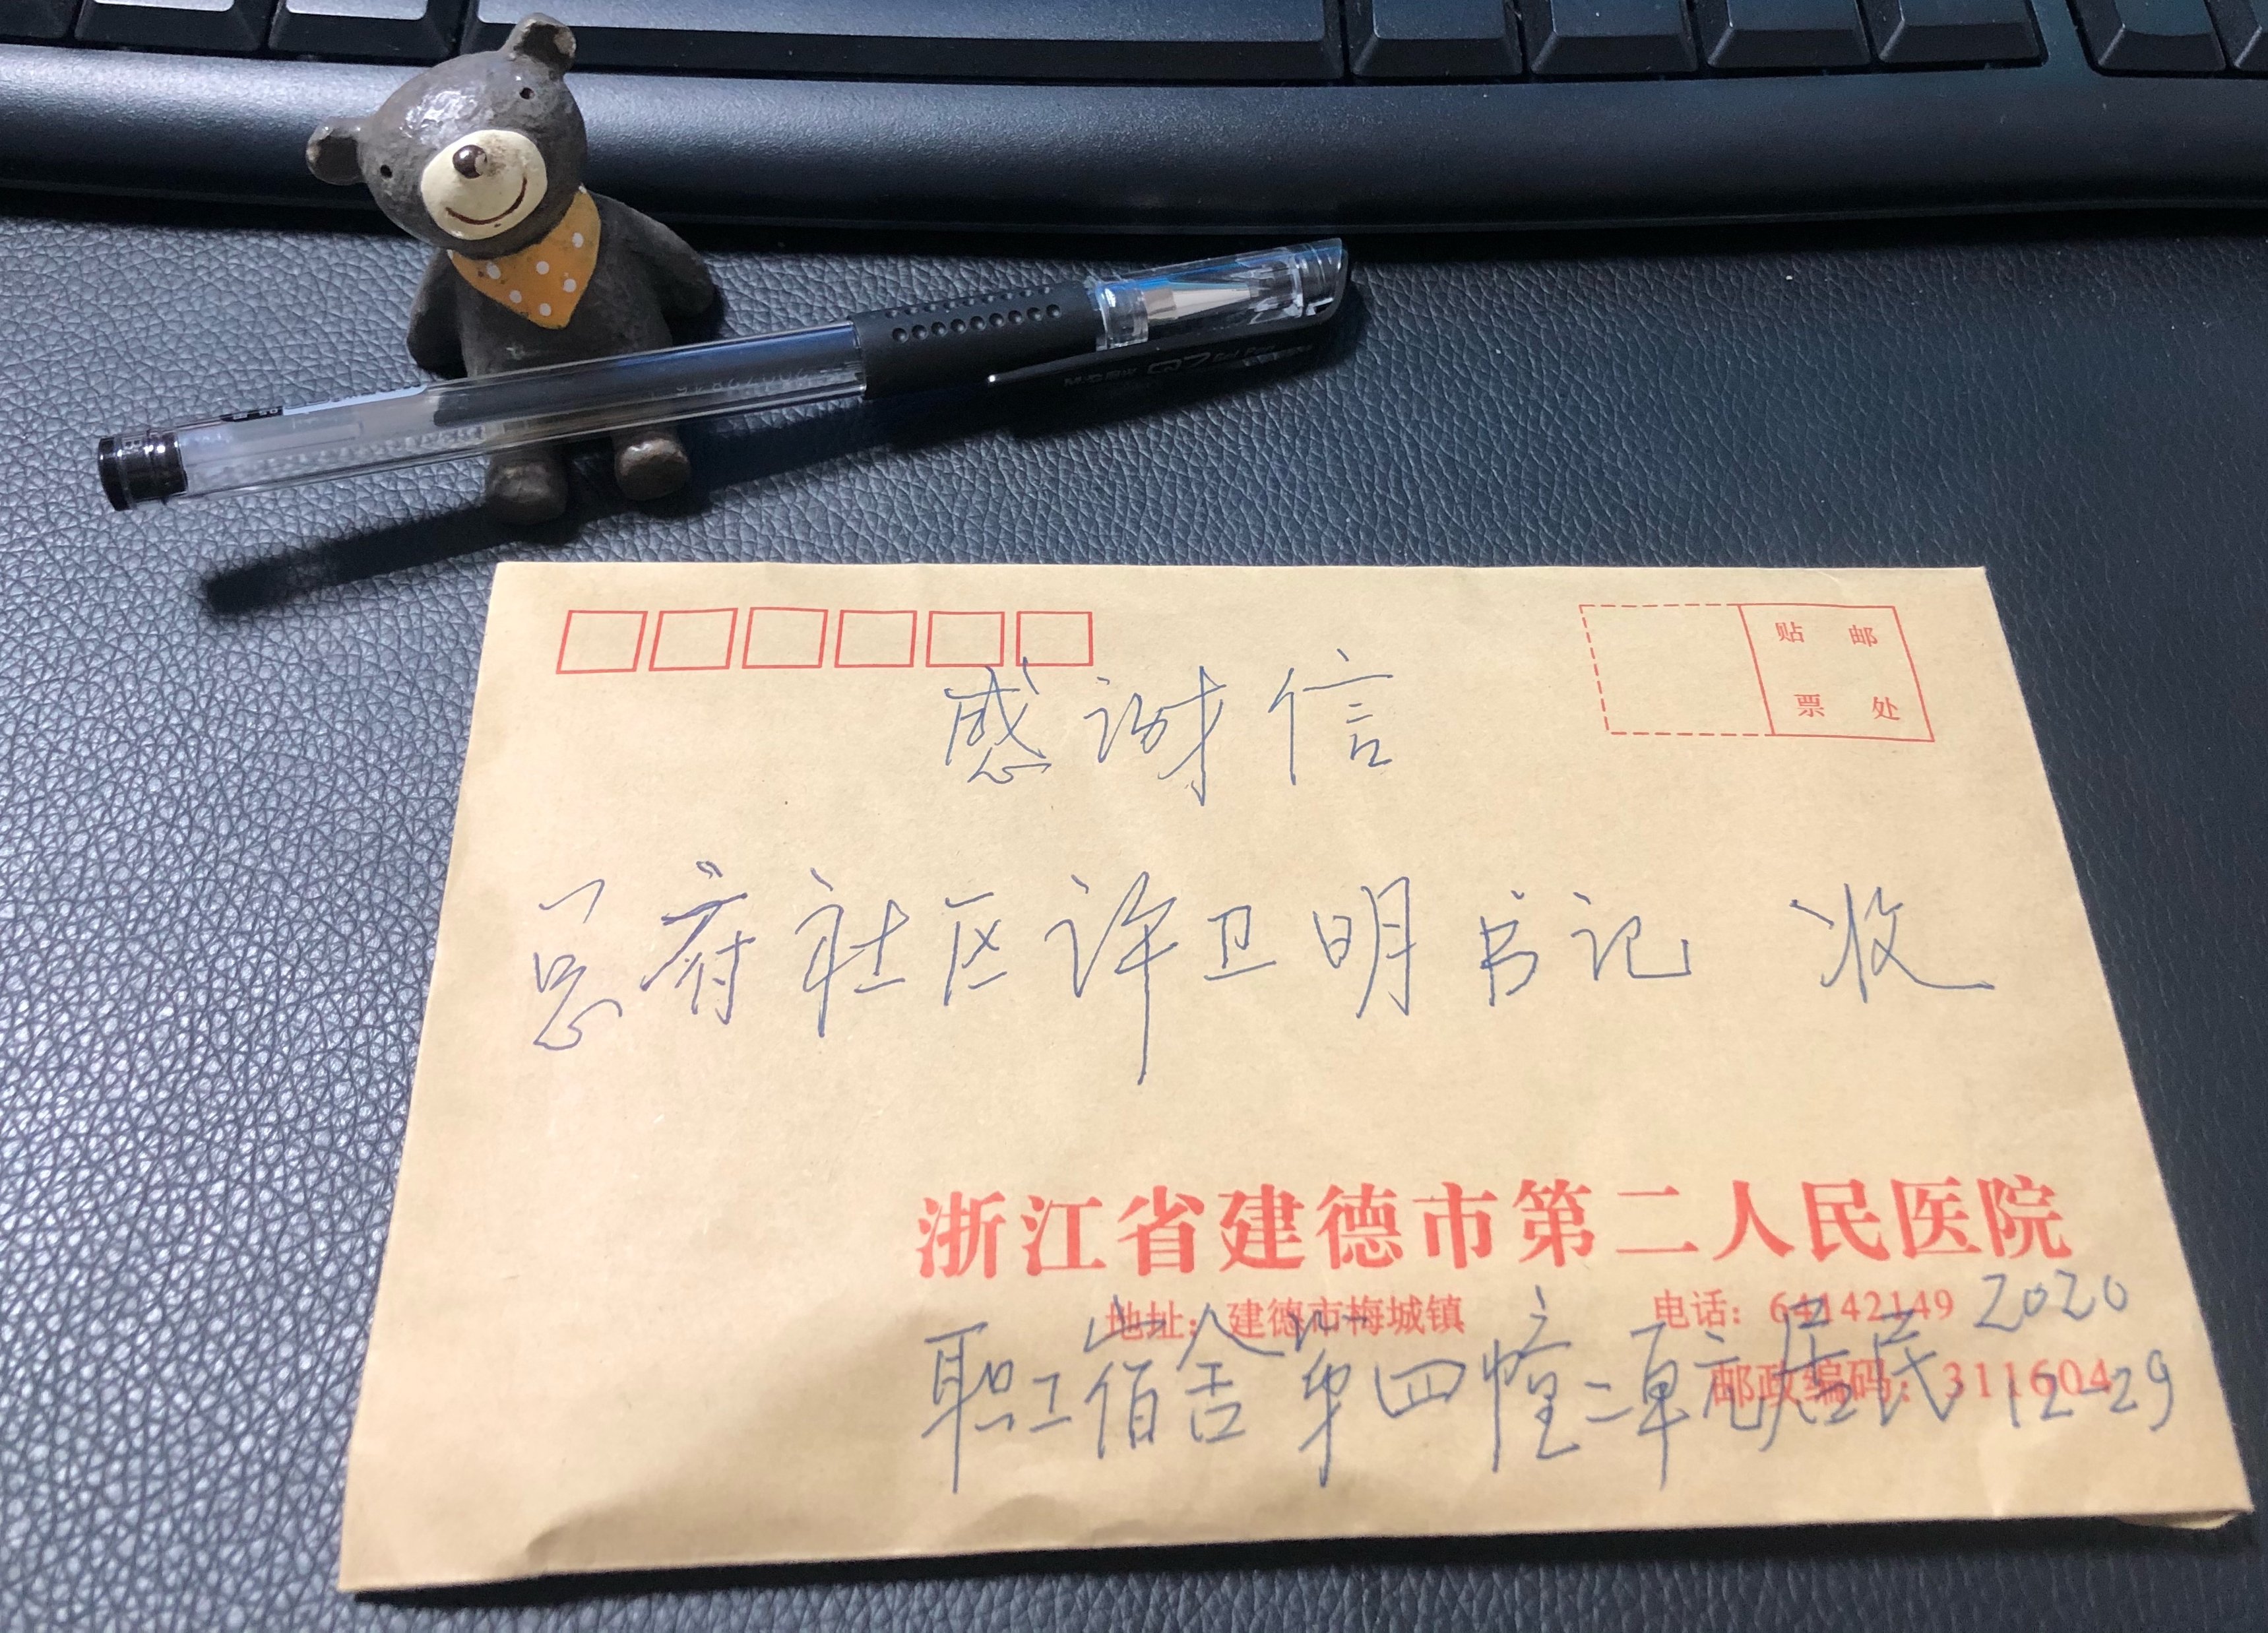 贴 邮
票 处
感谢信
总府社区许卫明书记 收
浙江省建德市第二人民医院
地址：建德市梅城镇 电话：64142149 2020
邮政编码：311604
职工宿舍第四幢二单元居民 12-29